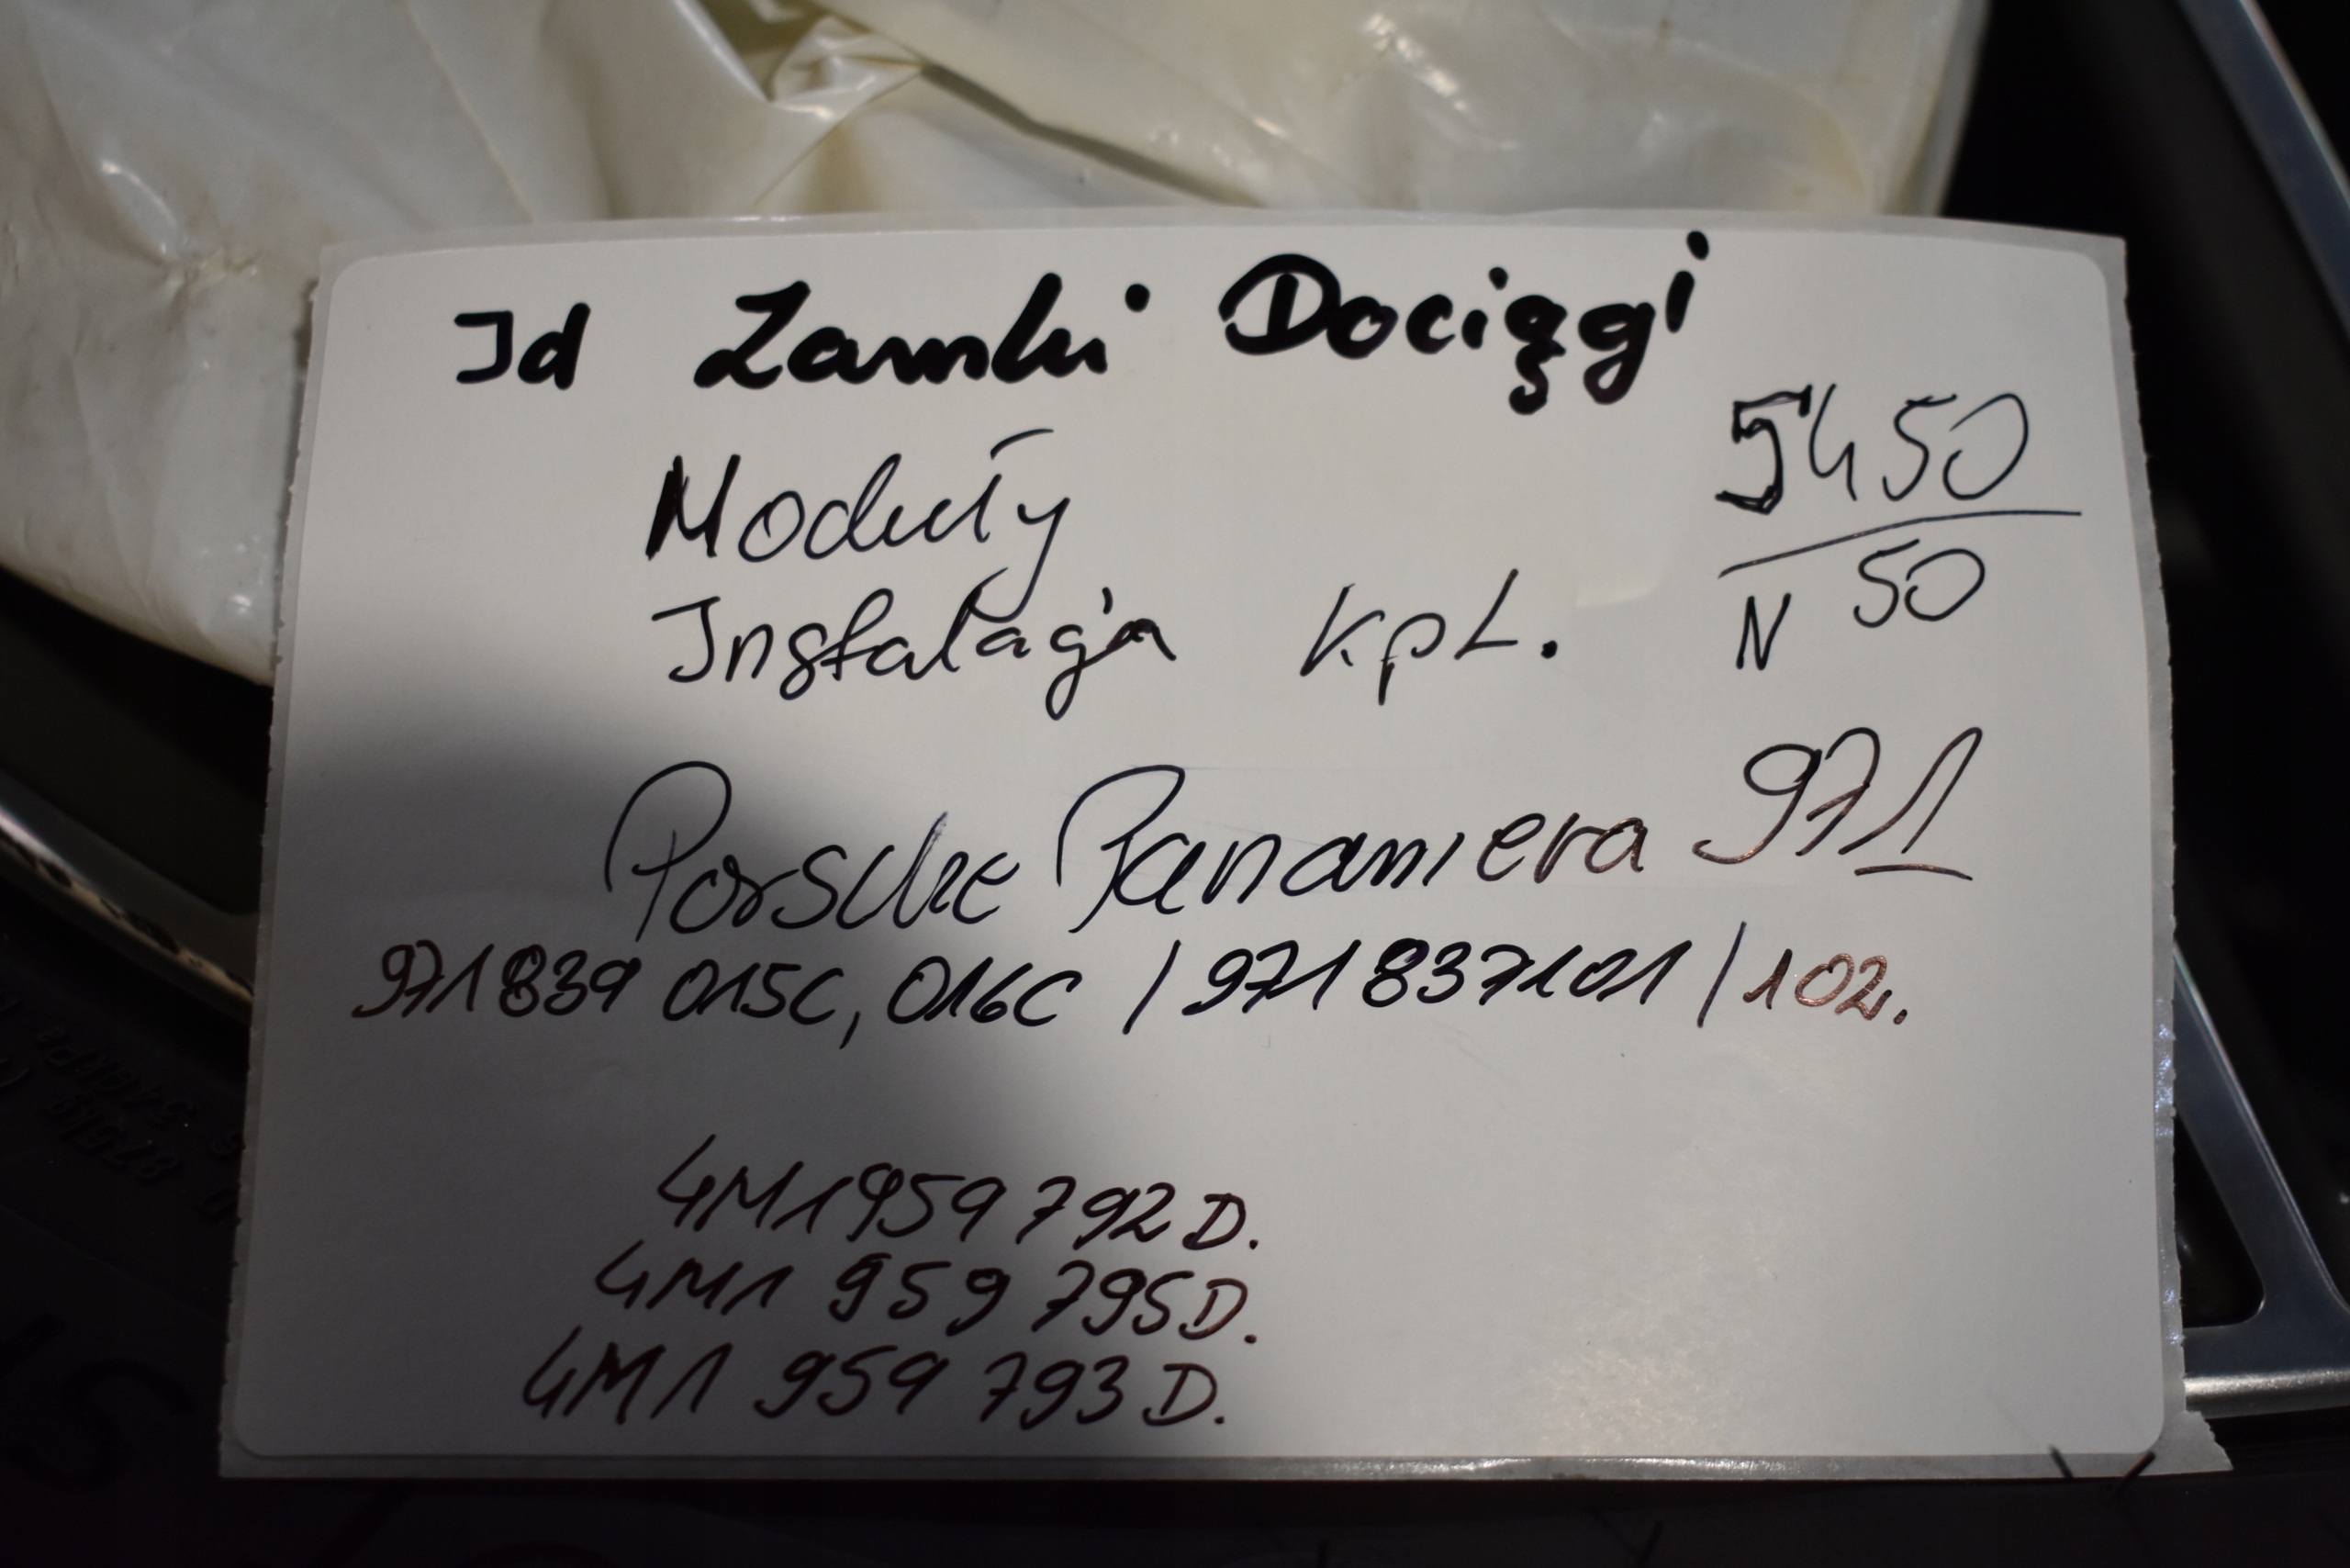 Id Zamki Dociągi
Moduły
5450
Instalacja kpl.
N 50
Porsche Panamera 971
971839 015C, 016C / 971837101 / 102.
4M1959792D.
4M1 959 795D.
4M1 959 793D.